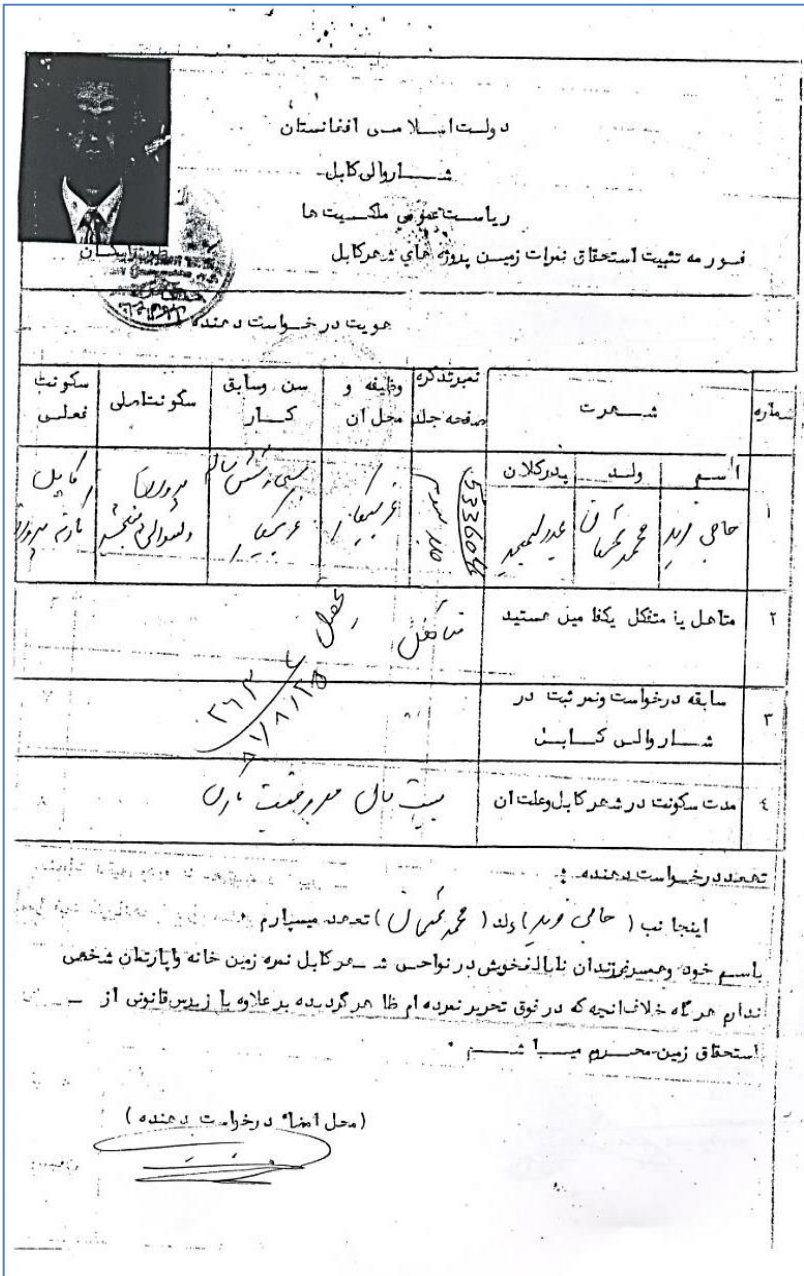 دولت اسلامی افغانستان
شاروالی کابل
ریاست عمومی ملکیت ها
فورمه تثبیت استحقاق نمرات زمین پروژه های شهر کابل
هویت درخواست دهنده
شماره شهرت نمبر تذکره صفحه جلد وظیفه و محل آن سن وسابق کار سکونت اصلی سکونت فعلی
اسم ولد پدرکلان
۱ حاجی فرید 533604 غریبکار غریبکار کابل
۲ متاهل یا متکفل یک فامیل هستید متاهل
۳ سابقه درخواست ونمر ثبت در شاروالی کابل ۲۶۳ ۸۱/۸/۲۵
٤ مدت سکونت در شهر کابل وعلت ان بیست سال
تعهد درخواست دهنده :
اینجانب ( حاجی فرید ) ولد ( محمد ) تعهد میسپارم
باسم خود وهمسر فرزندان نابالغ خویش در نواحی شهر کابل نمره زمین خانه واپارتمان شخصی
ندارم هرگاه خلاف انچه که در فوق تحریر نمرده ام ظاهر گردیده بر علاوه با زپرس قانونی از
استحقاق زمین محروم میباشم .
(محل امضاء درخواست دهنده)